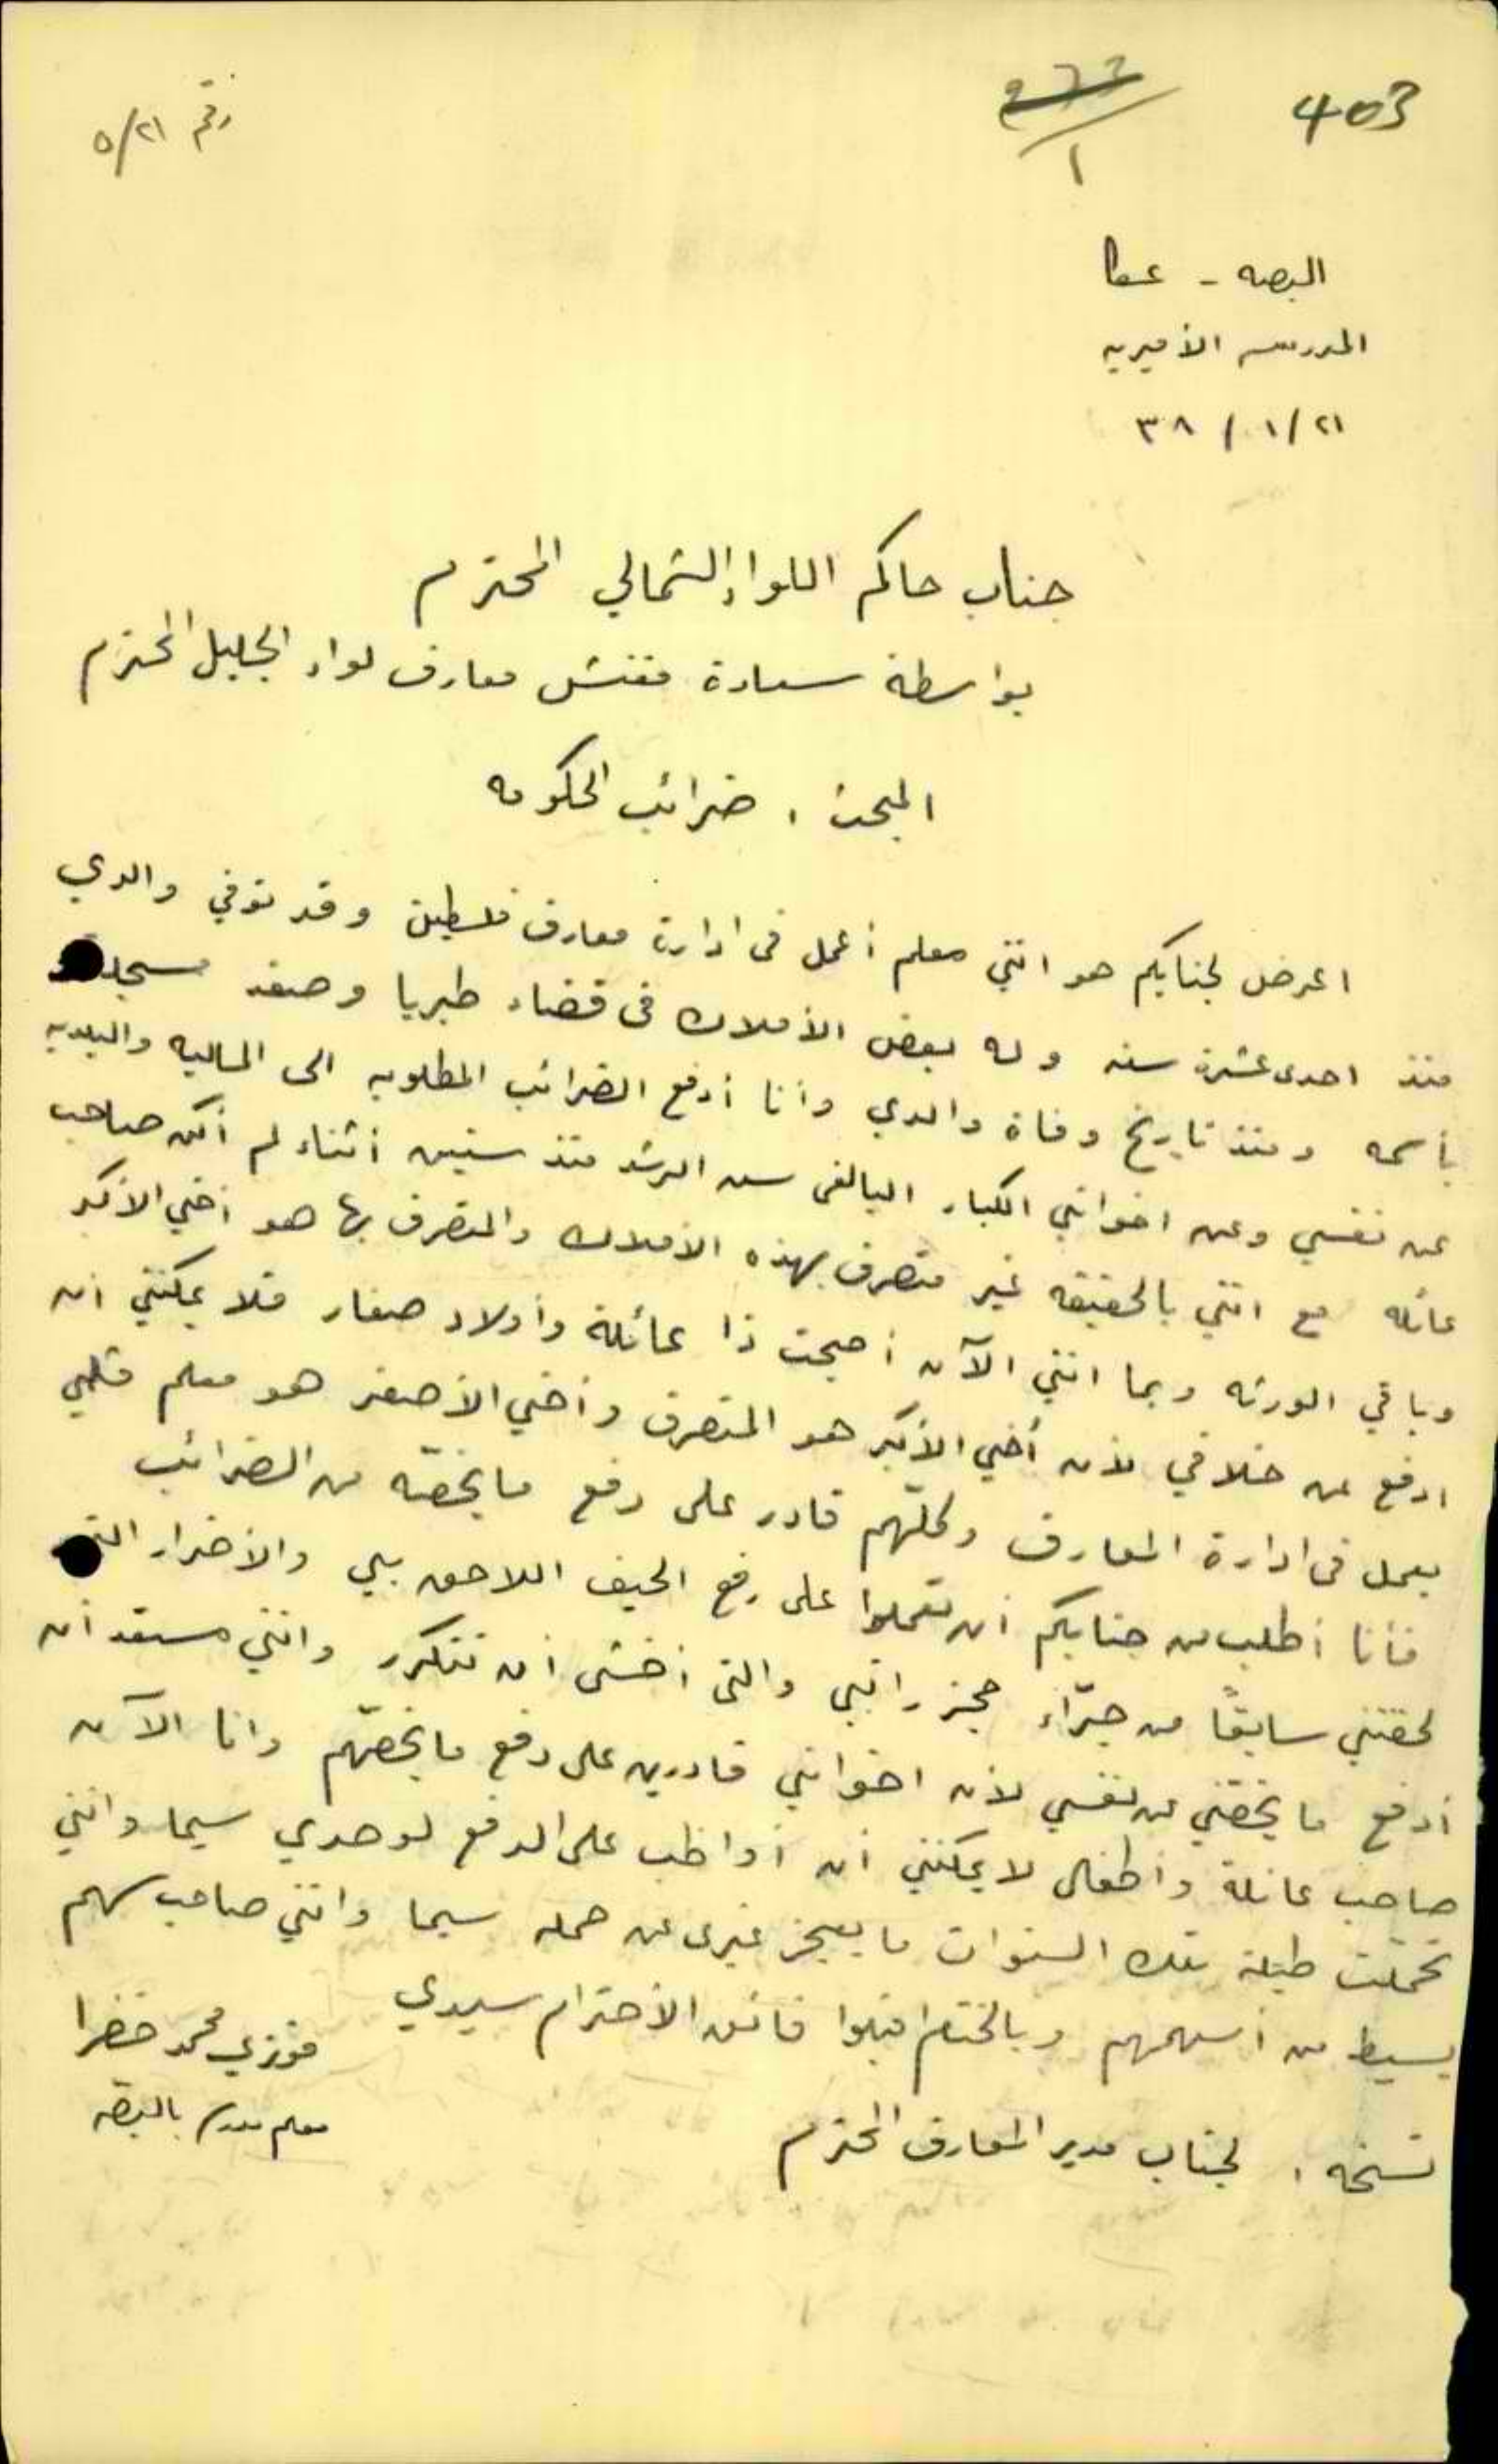 403
رقم ٥/٢١
البصه - عكا
المدرسه الأميريه
٣٨ / ١ / ٢١
جناب حاكم اللواء الشمالي المحترم
بواسطة سعادة مفتش معارف لواء الجليل المحترم
المبحث ، ضرائب الحكومه
اعرض لجنابكم هو انني معلم أعمل في ادارة معارف فلسطين وقد توفي والدي
منذ احدى عشرة سنه وله بعض الأملاك في قضاء طبريا وصفد مسجلة
بأسمه ومنذ تاريخ وفاة والدي وأنا أدفع الضرائب المطلوبه الى الماليه والبلديه
عن نفسي وعن اخواني الكبار البالغى سن الرشد منذ سنين أثناء لم أكن صاحب
عائله مع انني بالحقيقه غير متصرف بهذه الأملاك والمتصرف بها هو أخي الأكبر
وباقي الورثه وبما انني الآن أصبحت ذا عائلة وأولاد صغار فلا يمكنني ان
ادفع عن خلافي لأن أخي الأكبر هو المتصرف وأخي الأصغر هو معلم مثلي
يعمل في ادارة المعارف وكلّهم قادر على دفع ما يخصّه من الضرائب
فأنا أطلب من جنابكم أن تعملوا على رفع الحيف اللاحق بي والأضرار التي
لحقتني سابقًا من جرّاء حجز راتبي والتي أخشى أن تتكرر وانني مستعد أن
أدفع ما يخصّني عن نفسي لأن اخواني قادرين على دفع ما يخصّهم وانا الآن
صاحب عائلة وأطفال لا يمكنني ان أواظب على الدفع لوحدي سيما وانني
تحمّلت طيلة تلك السنوات ما يعجز غيري عن حمله سيما وانني صاحب سهم
بسيط من أسهمهم وبالختام اقبلوا فائق الأحترام سيدي
فوزي محمد خضرا
معلم مدرسة بالبصّه
نسخه ، لجناب مدير المعارف المحترم